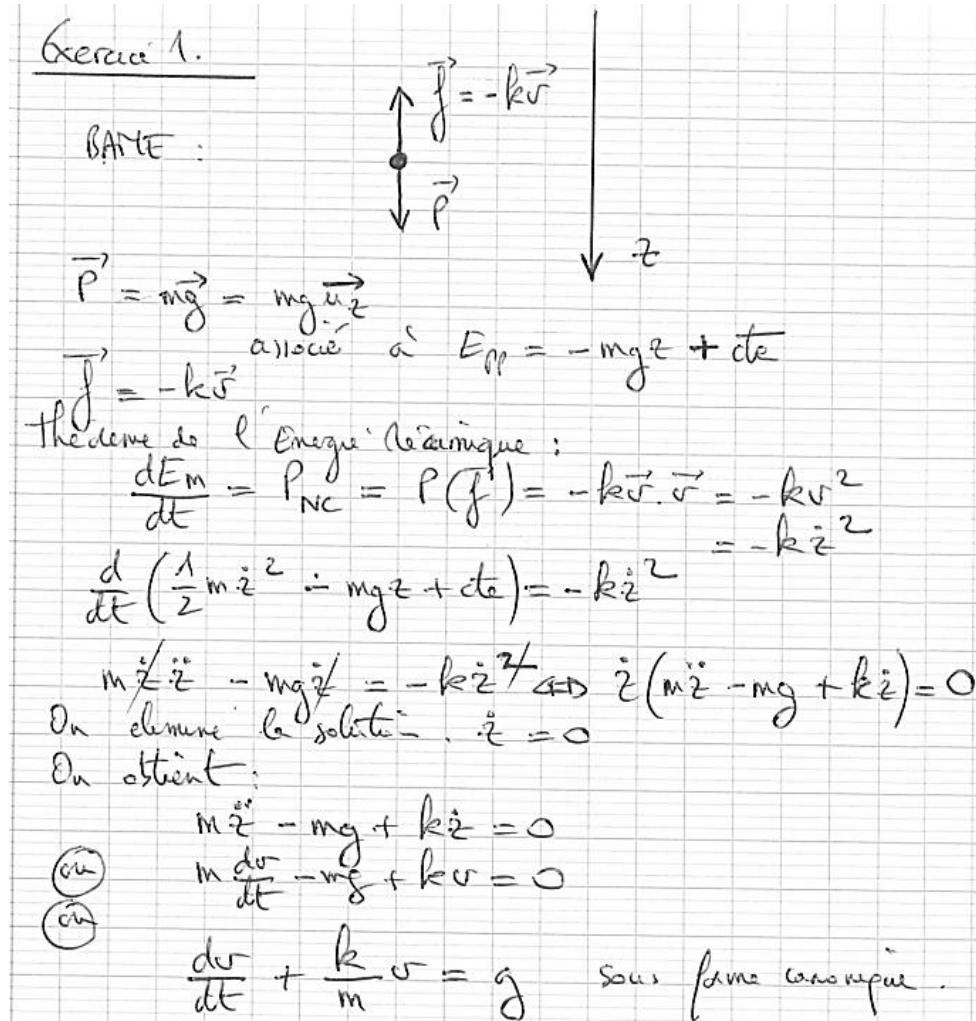 Exercice 1.
$\vec{f} = -k\vec{v}$
BAME :
$\vec{P}$
z
$\vec{P} = m\vec{g} = mg\vec{u_z}$
associé à $E_{pp} = -mgz + \overline{cte}$
$\vec{f} = -k\vec{v}$
théoreme de l'Energie Mécanique :
$\frac{dE_m}{dt} = P_{NC} = P(\vec{f}) = -k\vec{v}.\vec{v} = -kv^2$
$= -k\dot{z}^2$
$\frac{d}{dt}\left(\frac{1}{2}m\dot{z}^2 - mgz + cte\right) = -k\dot{z}^2$
$m\dot{z}\ddot{z} - mg\dot{z} = -k\dot{z}^2 \Leftrightarrow \dot{z}(m\ddot{z} - mg + k\dot{z}) = 0$
On elimine la solution. $\dot{z} = 0$
On obtient :
$m\ddot{z} - mg + k\dot{z} = 0$
ou $m\frac{dv}{dt} - mg + kv = 0$
ou
$\frac{dv}{dt} + \frac{k}{m}v = g$ sous forme canonique.